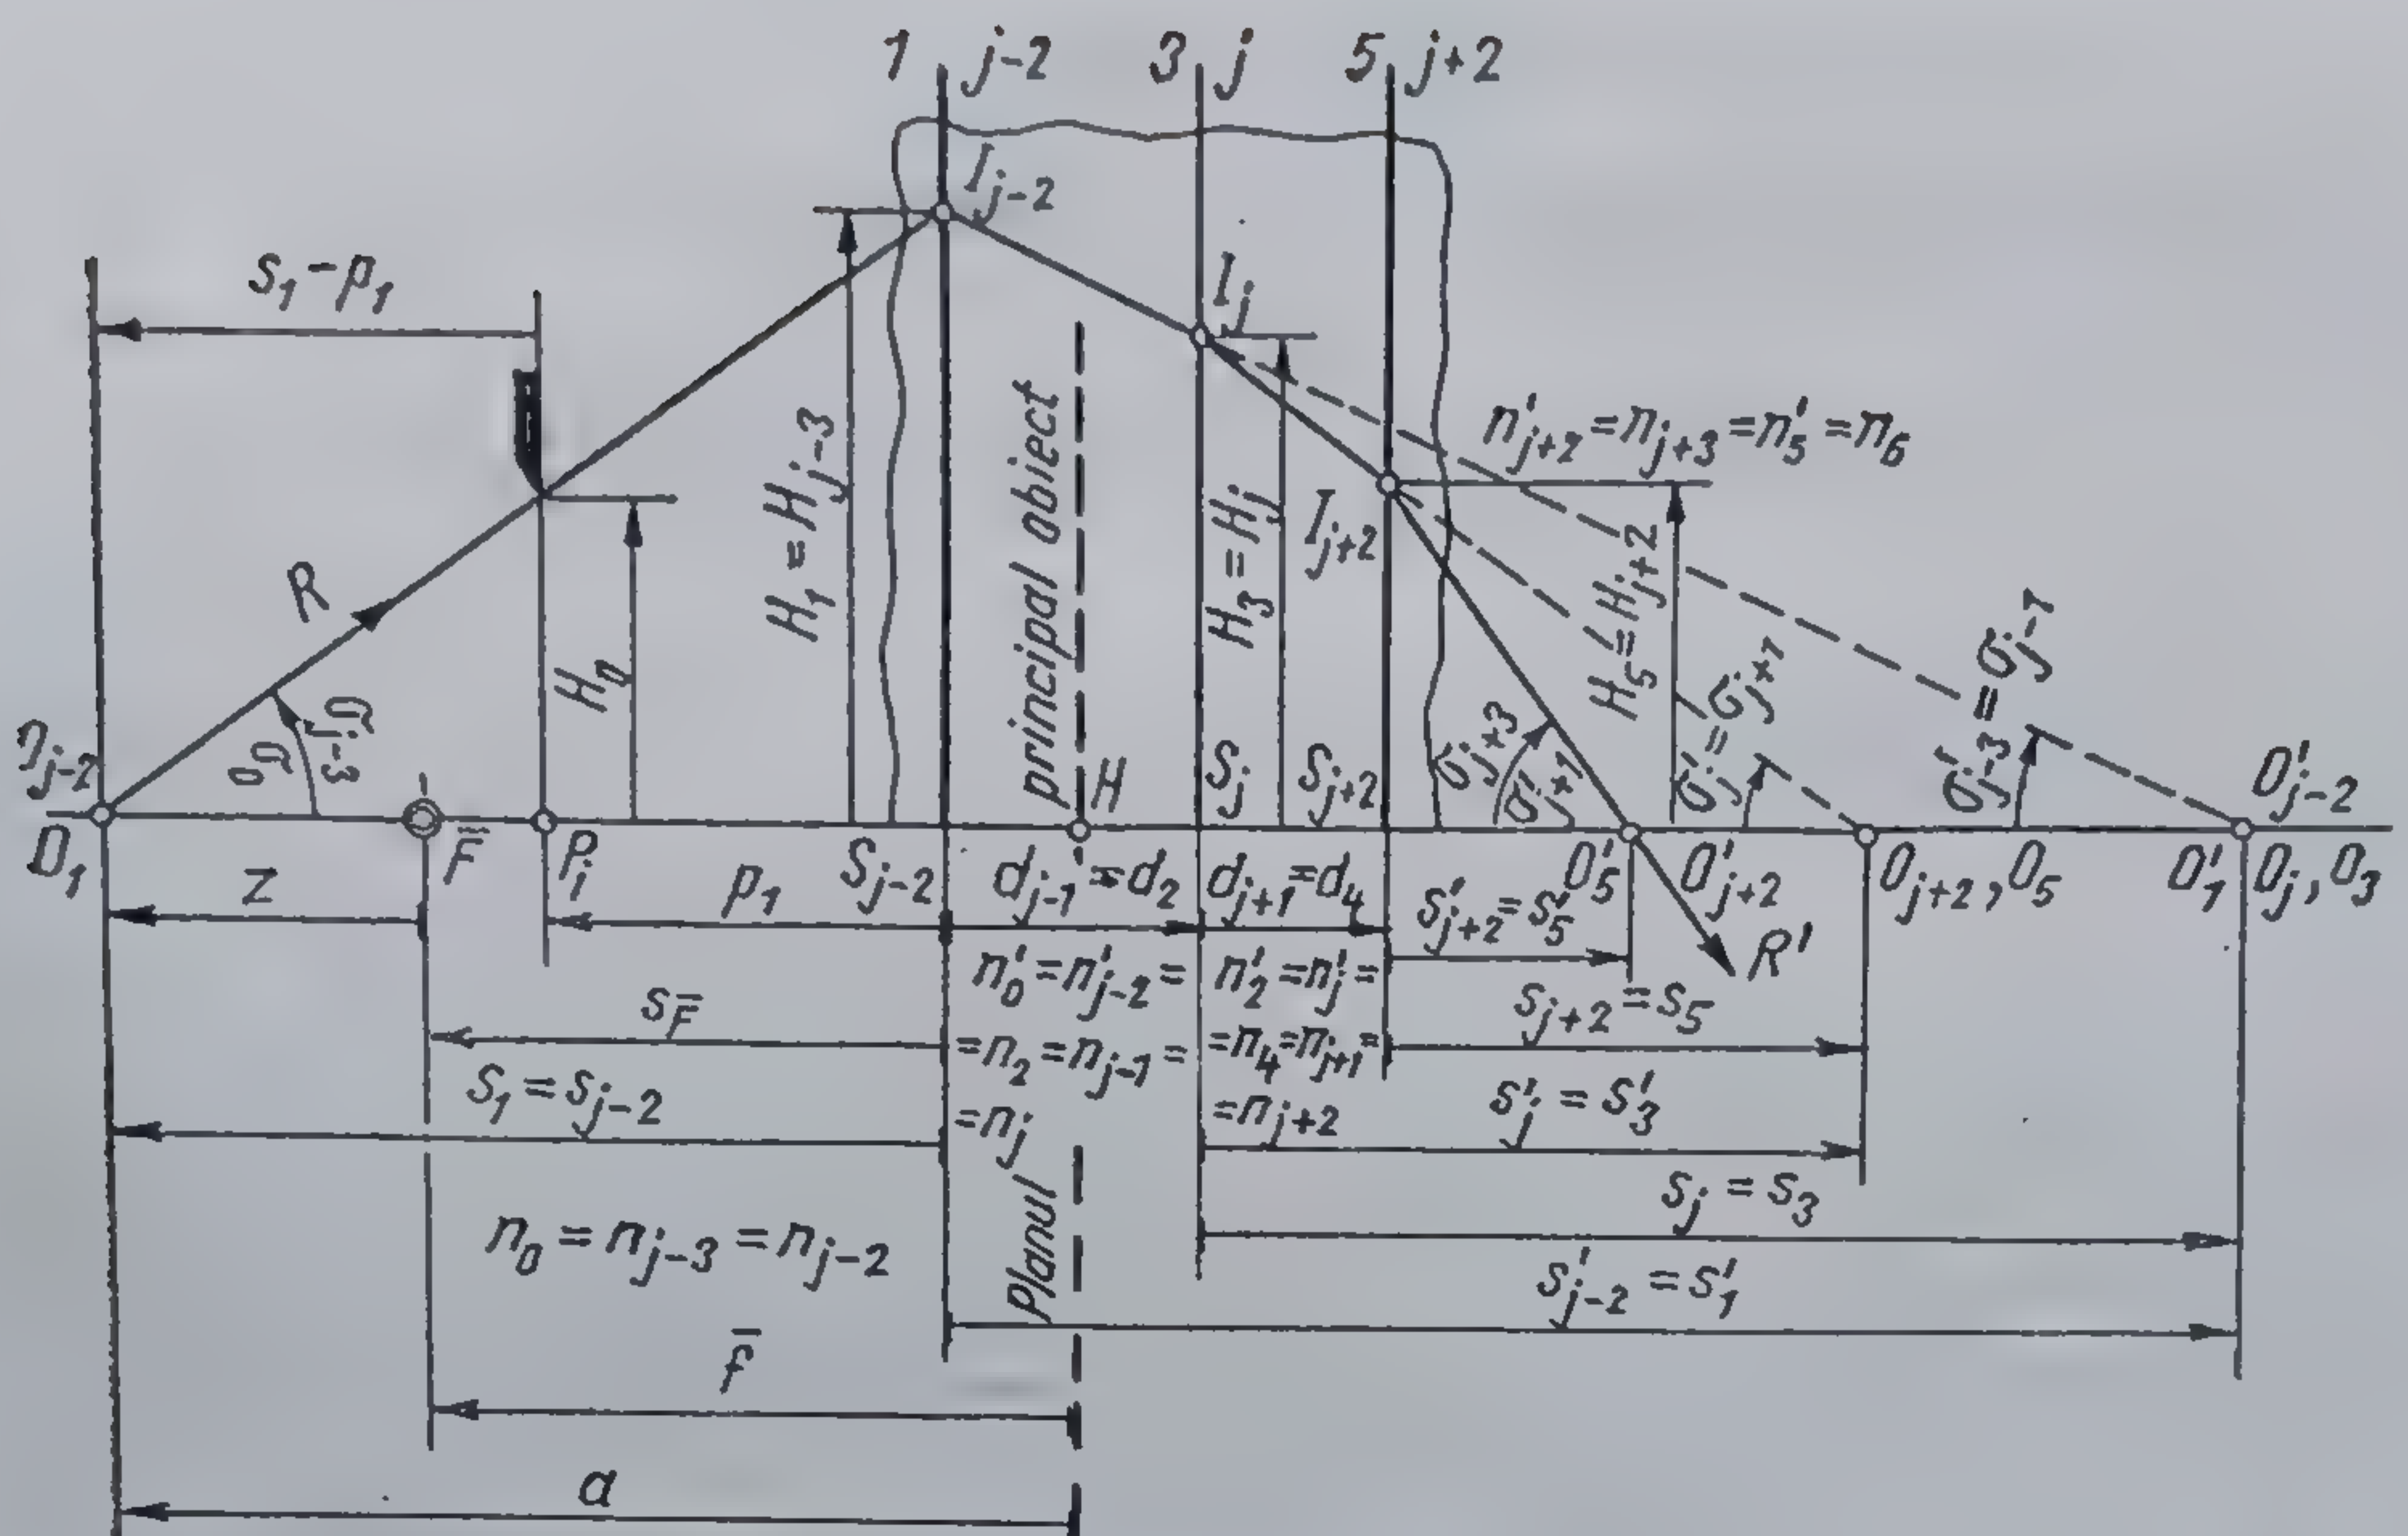 1 j-2 3 j 5 j+2
I_{j-2}
s_1-p_1
I_j
n'_{j+2}=n_{j+3}=n'_5=n_6
I_{j+2}
R
H_1=H_{j-3}
principal obiect
H_3=H_j
H_5=H_{j+2}
n_{j-2}
σ_{j-3}
σ_{j+3}
σ'_j=σ_{j+1}
σ'_{j-3}=σ_{j-1}
H
S_j
S_{j+2}
O'_{j-2}
O_1
F̄
P_i
S_{j-2}
d_{j-1}=d_2
d_{j+1}=d_4
O'_5
O'_{j+2}
O_{j+2}, O_5
O'_1
O_j, O_3
z
p_1
s'_{j+2}=s'_5
R'
n'_0=n'_{j-2}=
=n_2=n_{j-1}=
=n_j
n'_2=n'_j=
=n_4=n_{j+1}=
=n_{j+2}
s_F̄
s_{j+2}=s_5
s_1=s_{j-2}
s'_j=s'_3
s_j=s_3
n_0=n_{j-3}=n_{j-2}
Planul
s'_{j-2}=s'_1
f̄
a